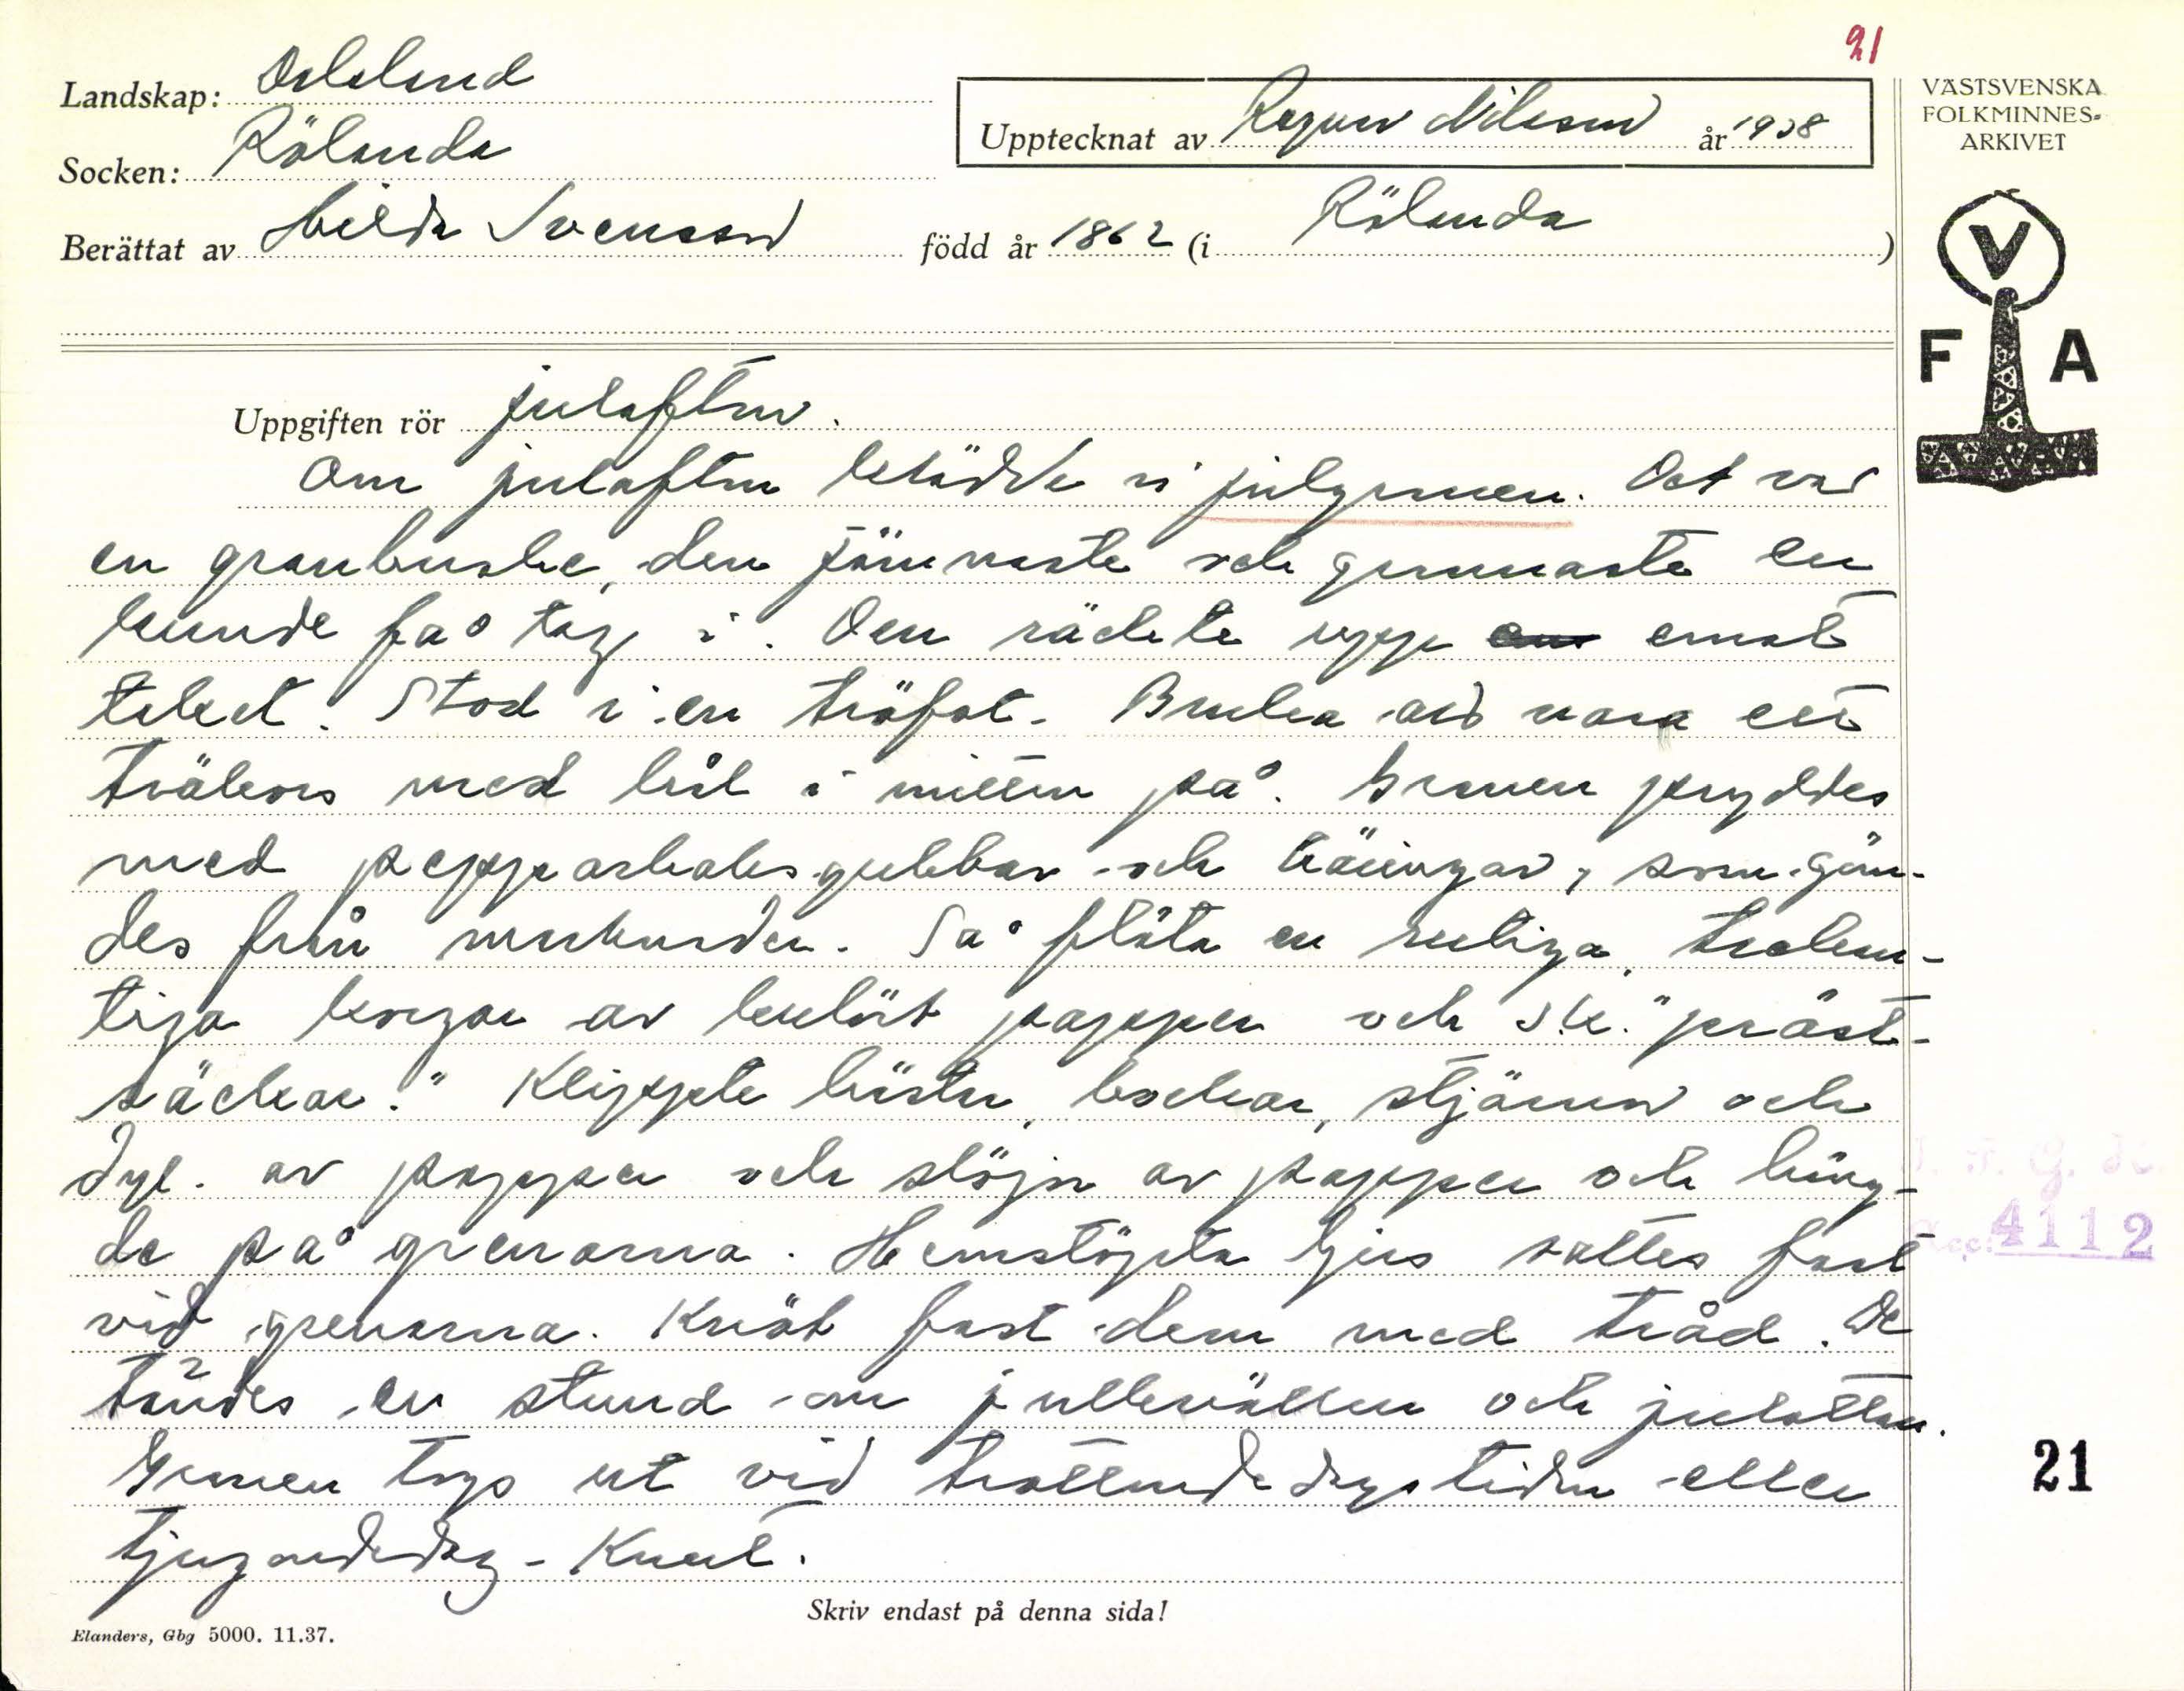 21
Landskap: Dalsland
Socken: Rölanda
Upptecknat av Ragnar Nilsson år 1938
Berättat av Hilda Svensson född år 1862 (i Rölanda)
VÄSTSVENSKA
FOLKMINNES-
ARKIVET
V
F A
Uppgiften rör julaften.
Om julaften klädde vi julgranen. Det var
en granbuske, den jämnaste och grannaste en
kunde få tag i. Den räckte upp emot
taket. Stod i en träfot. Bruka att vara ett
träkors med hål i mitten på. Granen pryddes
med pepparkaksgubbar och kringlor, som göm-
des från marknaden. Så fläta en rutiga, trekan-
tiga korgar av kulört papper och s.k. "präst-
säckar." Klippte hästar, bockar, stjärnor och
dyl. av papper och slöjor av papper och häng-
de på grenarna. Hemstöpta ljus sattes fast
vid grenarna. Knöt fast dem med tråd. De
tändes en stund om julkvällen och julottan.
Granen togs ut vid trettondedagstiden eller
tjugondedag-Knut.
Skriv endast på denna sida!
Elanders, Gbg 5000. 11.37.
4112
21